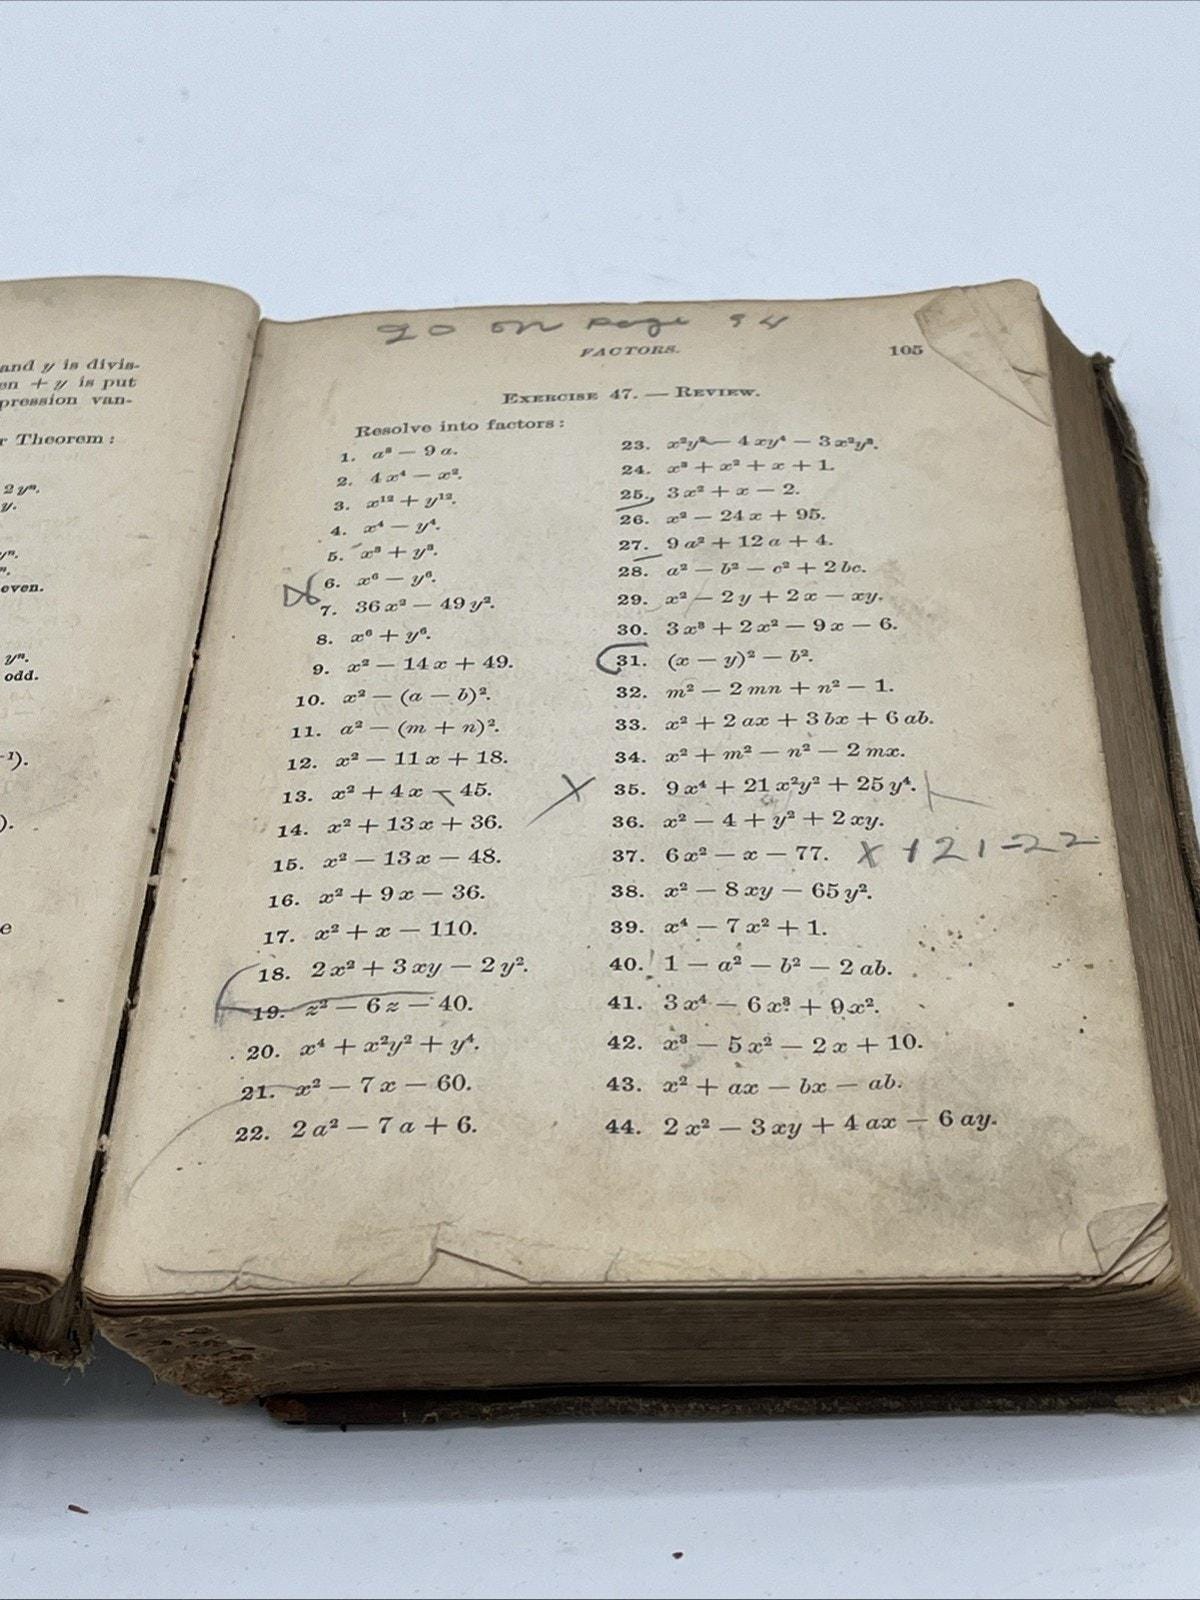 and y is divis-
en + y is put
pression van-
r Theorem:
2yⁿ.
y.
yⁿ.
ⁿ.
even.
yⁿ.
odd.
⁻¹).
).
e
go on page 94
FACTORS. 105
EXERCISE 47. — REVIEW.
Resolve into factors:
1. a³ − 9a.
2. 4x⁴ − x².
3. x¹² + y¹².
4. x⁴ − y⁴.
5. x³ + y³.
6. x⁶ − y⁶.
7. 36x² − 49y².
8. x⁶ + y⁶.
9. x² − 14x + 49.
10. x² − (a − b)².
11. a² − (m + n)².
12. x² − 11x + 18.
13. x² + 4x − 45.
14. x² + 13x + 36.
15. x² − 13x − 48.
16. x² + 9x − 36.
17. x² + x − 110.
18. 2x² + 3xy − 2y².
19. z² − 6z − 40.
20. x⁴ + x²y² + y⁴.
21. x² − 7x − 60.
22. 2a² − 7a + 6.
23. x²y² − 4xy⁴ − 3x²y³.
24. x³ + x² + x + 1.
25. 3x² + x − 2.
26. x² − 24x + 95.
27. 9a² + 12a + 4.
28. a² − b² − c² + 2bc.
29. x² − 2y + 2x − xy.
30. 3x³ + 2x² − 9x − 6.
31. (x − y)² − b².
32. m² − 2mn + n² − 1.
33. x² + 2ax + 3bx + 6ab.
34. x² + m² − n² − 2mx.
X 35. 9x⁴ + 21x²y² + 25y⁴.
36. x² − 4 + y² + 2xy.
37. 6x² − x − 77. x + 21 − 22
38. x² − 8xy − 65y².
39. x⁴ − 7x² + 1.
40. 1 − a² − b² − 2ab.
41. 3x⁴ − 6x³ + 9x².
42. x³ − 5x² − 2x + 10.
43. x² + ax − bx − ab.
44. 2x² − 3xy + 4ax − 6ay.